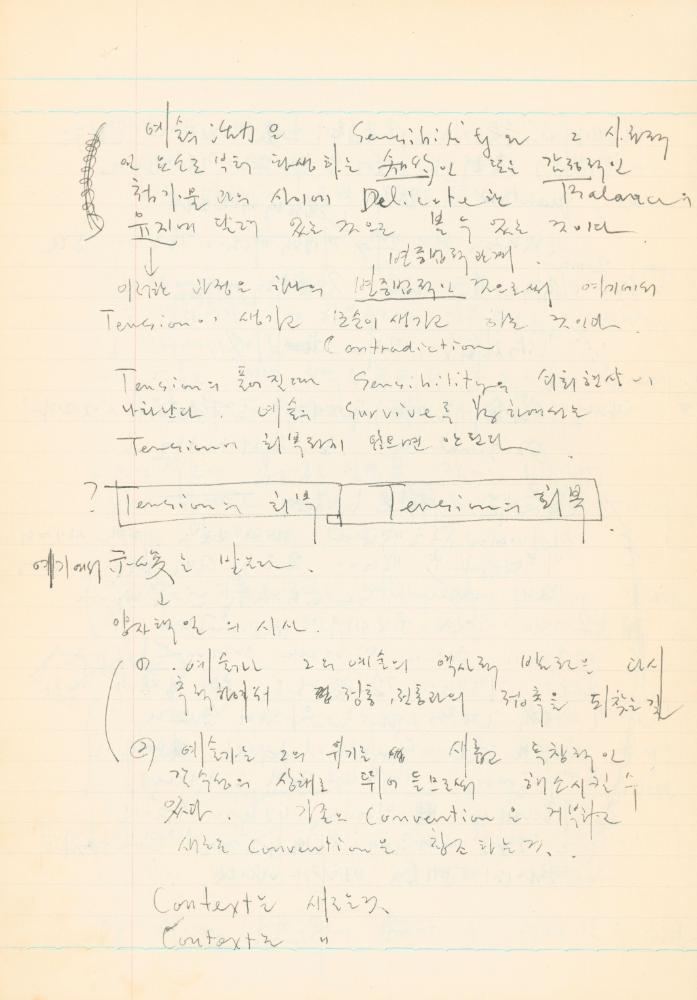 예술의 活力은 Sensibility와 그 사회적
인 요소로부터 파생하는 知的인 또는 감정적인
첨가물과의 사이에 Delicate한 Balance의
유지에 달려 있는 것으로 볼 수 있는 것이다
변증법적 관계.
↓
이러한 과정은 하나의 변증법적인 것으로써 여기에서
Tension이 생기고 모순이 생기고 하는 것이다.
Contradiction
Tension의 풀어질때 Sensibility의 쇠퇴현상이
나타난다. 예술의 Survive를 위하여서는
Tension이 회복되지 않으면 안된다.
? Tension의 회복 Tension의 회복
여기에서 示唆를 받는다.
↓
양자택일의 시사.
① . 예술가는 그의 예술의 역사적 발전은 다시
추적하여서 정통, 전통과의 접촉을 되찾는 길
② 예술가는 그의 위기를 새롭고 독창적인
감수성의 상태로 뛰어 듦으로써 해소시킬 수
있다. 기존의 Convention을 거부하고
새로운 Convention을 창조하는것.
Context는 새로운것.
Context는 "